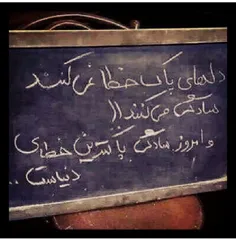 دلهای پاک خطا نمی کنند
سادگی می کنند !!
و امروز سادگی پاکترین خطای
دنیاست ..